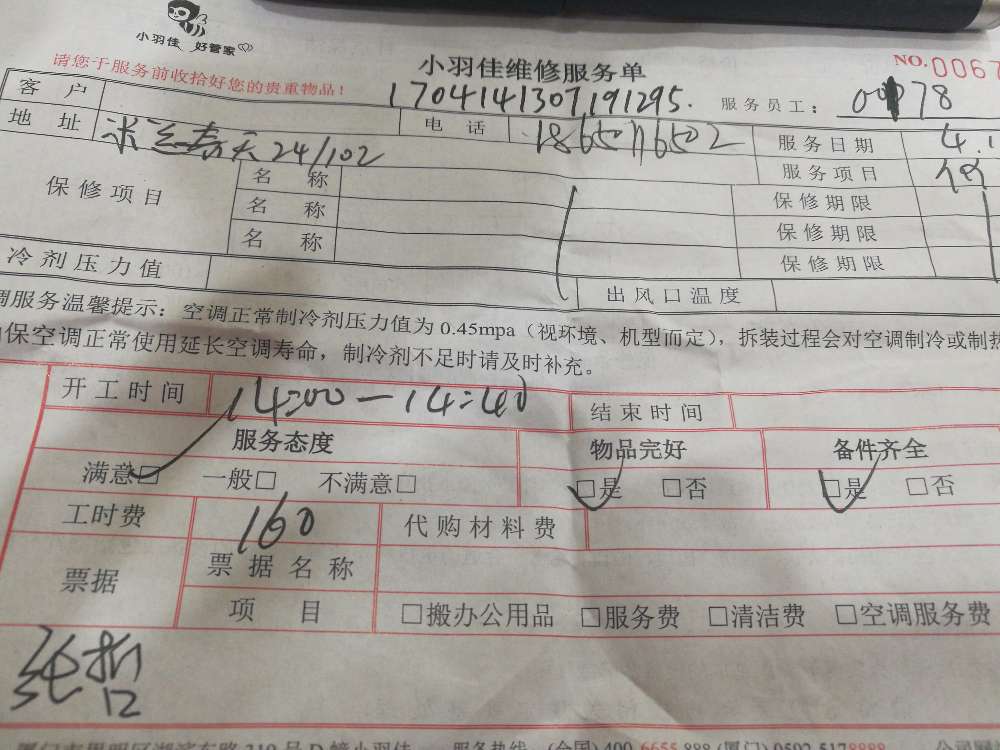 小羽佳 好管家
请您于服务前收拾好您的贵重物品！
小羽佳维修服务单
NO.0067
1704141307191295.
服务员工：
78
客 户
地 址
米兰春天24/102
电 话
18650116502
服务日期
4.1
服务项目
保修项目
名 称
保修期限
名 称
保修期限
名 称
保修期限
冷剂压力值
出风口温度
调服务温馨提示：空调正常制冷剂压力值为0.45mpa（视环境、机型而定），拆装过程会对空调制冷或制热
保空调正常使用延长空调寿命，制冷剂不足时请及时补充。
开工时间
14:00-14:40
结束时间
服务态度
物品完好
备件齐全
满意□ 一般□ 不满意□
□是 □否
□是 □否
工时费
160
代购材料费
票据
票据名称
项 目
□搬办公用品 □服务费 □清洁费 □空调服务费
纯拆
服务热线：(全国)400-6655-888(厦门)0592-5178888